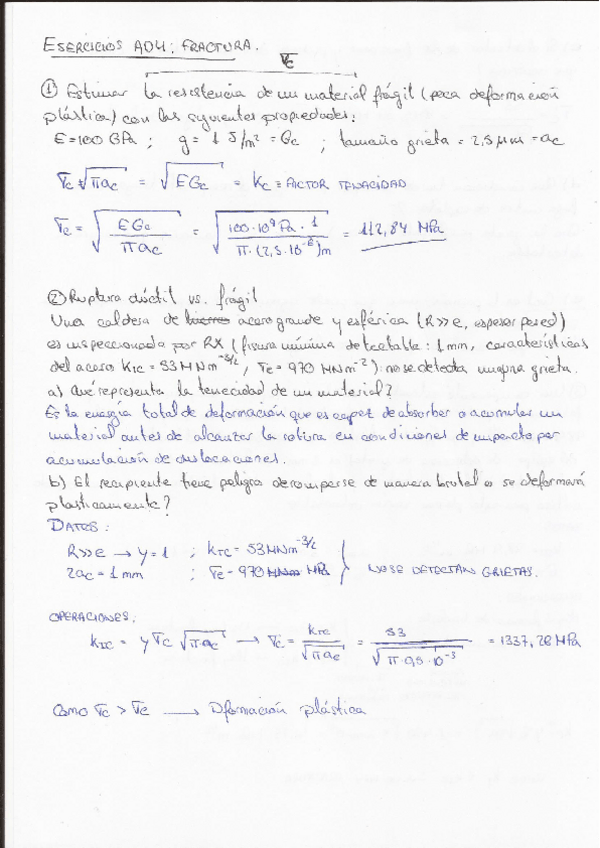 EJERCICIOS AD4: FRACTURA.
σc
① Estimar la resistencia de un material frágil (poca deformación
plástica) con las siguientes propiedades:
E=100 GPa ; g = 1 J/m² = Gc ; tamaño grieta = 2,5 μm = ac
σc √πac = √EGc = Kc = FACTOR TENACIDAD
σc = √(EGc / πac) = √(100·10⁹ Pa · 1 / π·(2,5·10⁻⁶)m) = 112,84 MPa
② Ruptura dúctil vs. frágil
Una caldera de acero grande y esférica (R>>e, espesor pared)
es inspeccionada por RX (fisura mínima detectable: 1mm, características
del acero KIC = 53 MNm⁻³/², σe = 970 MNm⁻²): no se detecta ninguna grieta.
a) Qué representa la tenacidad de un material?
Es la energía total de deformación que es capaz de absorber o acumular un
material antes de alcanzar la rotura en condiciones de impacto por
acumulación de dislocaciones.
b) El recipiente tiene peligro de romperse de manera brutal o se deformará
plásticamente?
DATOS:
R>>e → Y=1 ; KIC = 53 MNm⁻³/²
2ac = 1mm ; σe = 970 MPa } NO SE DETECTAN GRIETAS.
OPERACIONES.
KIC = Y σc √π·ac → σc = KIC / √πac = 53 / √π·0,5·10⁻³ = 1337,28 MPa
Como σc > σe → Dformación plástica